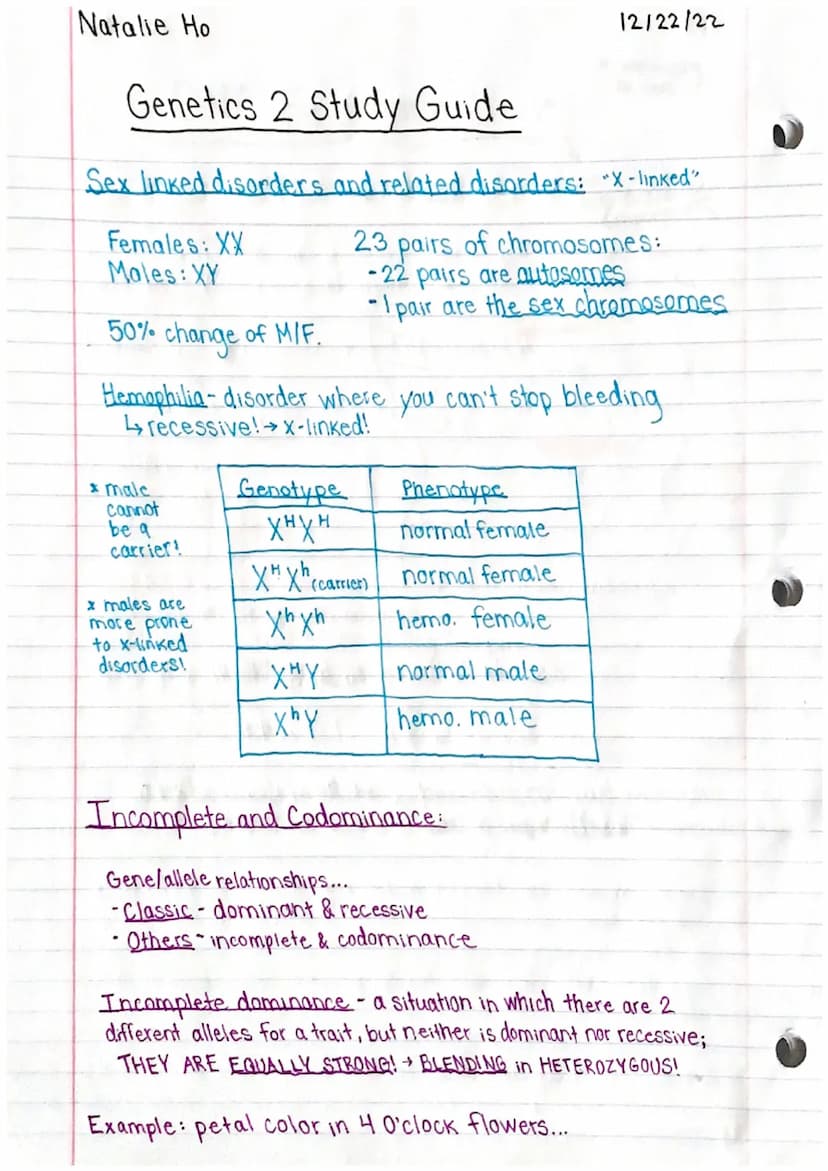 Natalie Ho 12/22/22
Genetics 2 Study Guide
Sex linked disorders and related disorders: "X-linked"
Females: XX
Males: XY
50% change of M/F.
23 pairs of chromosomes:
-22 pairs are autosomes
-1 pair are the sex chromosomes
Hemophilia - disorder where you can't stop bleeding
↳ recessive! → x-linked!
x male
cannot
be a
carrier!
x males are
more prone
to x-linked
disorders!
Genotype Phenotype
XᴴXᴴ normal female
XᴴXʰ (carrier) normal female
XʰXʰ hemo. female
XᴴY normal male
XʰY hemo. male
Incomplete and Codominance:
Gene/allele relationships...
- Classic - dominant & recessive
· Others - incomplete & codominance
Incomplete dominance - a situation in which there are 2
different alleles for a trait, but neither is dominant nor recessive;
THEY ARE EQUALLY STRONG! → BLENDING in HETEROZYGOUS!
Example: petal color in 4 O'clock flowers...